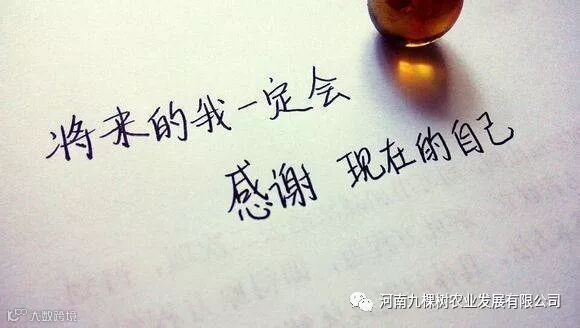 将来的我一定会
感谢 现在的自己
河南九棵树农业发展有限公司
大数跨境